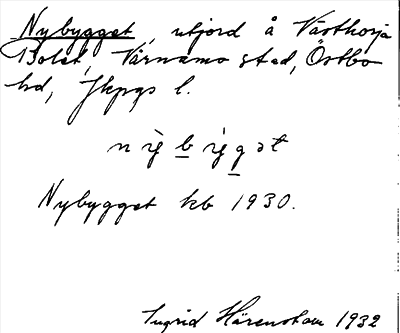 Nybygget, utjord å Västhorja
Bolet, Värnamo stad, Östbo
hd, Jkpgs l.
Nybygget kb 1930.
Ingrid Härenstam 1932